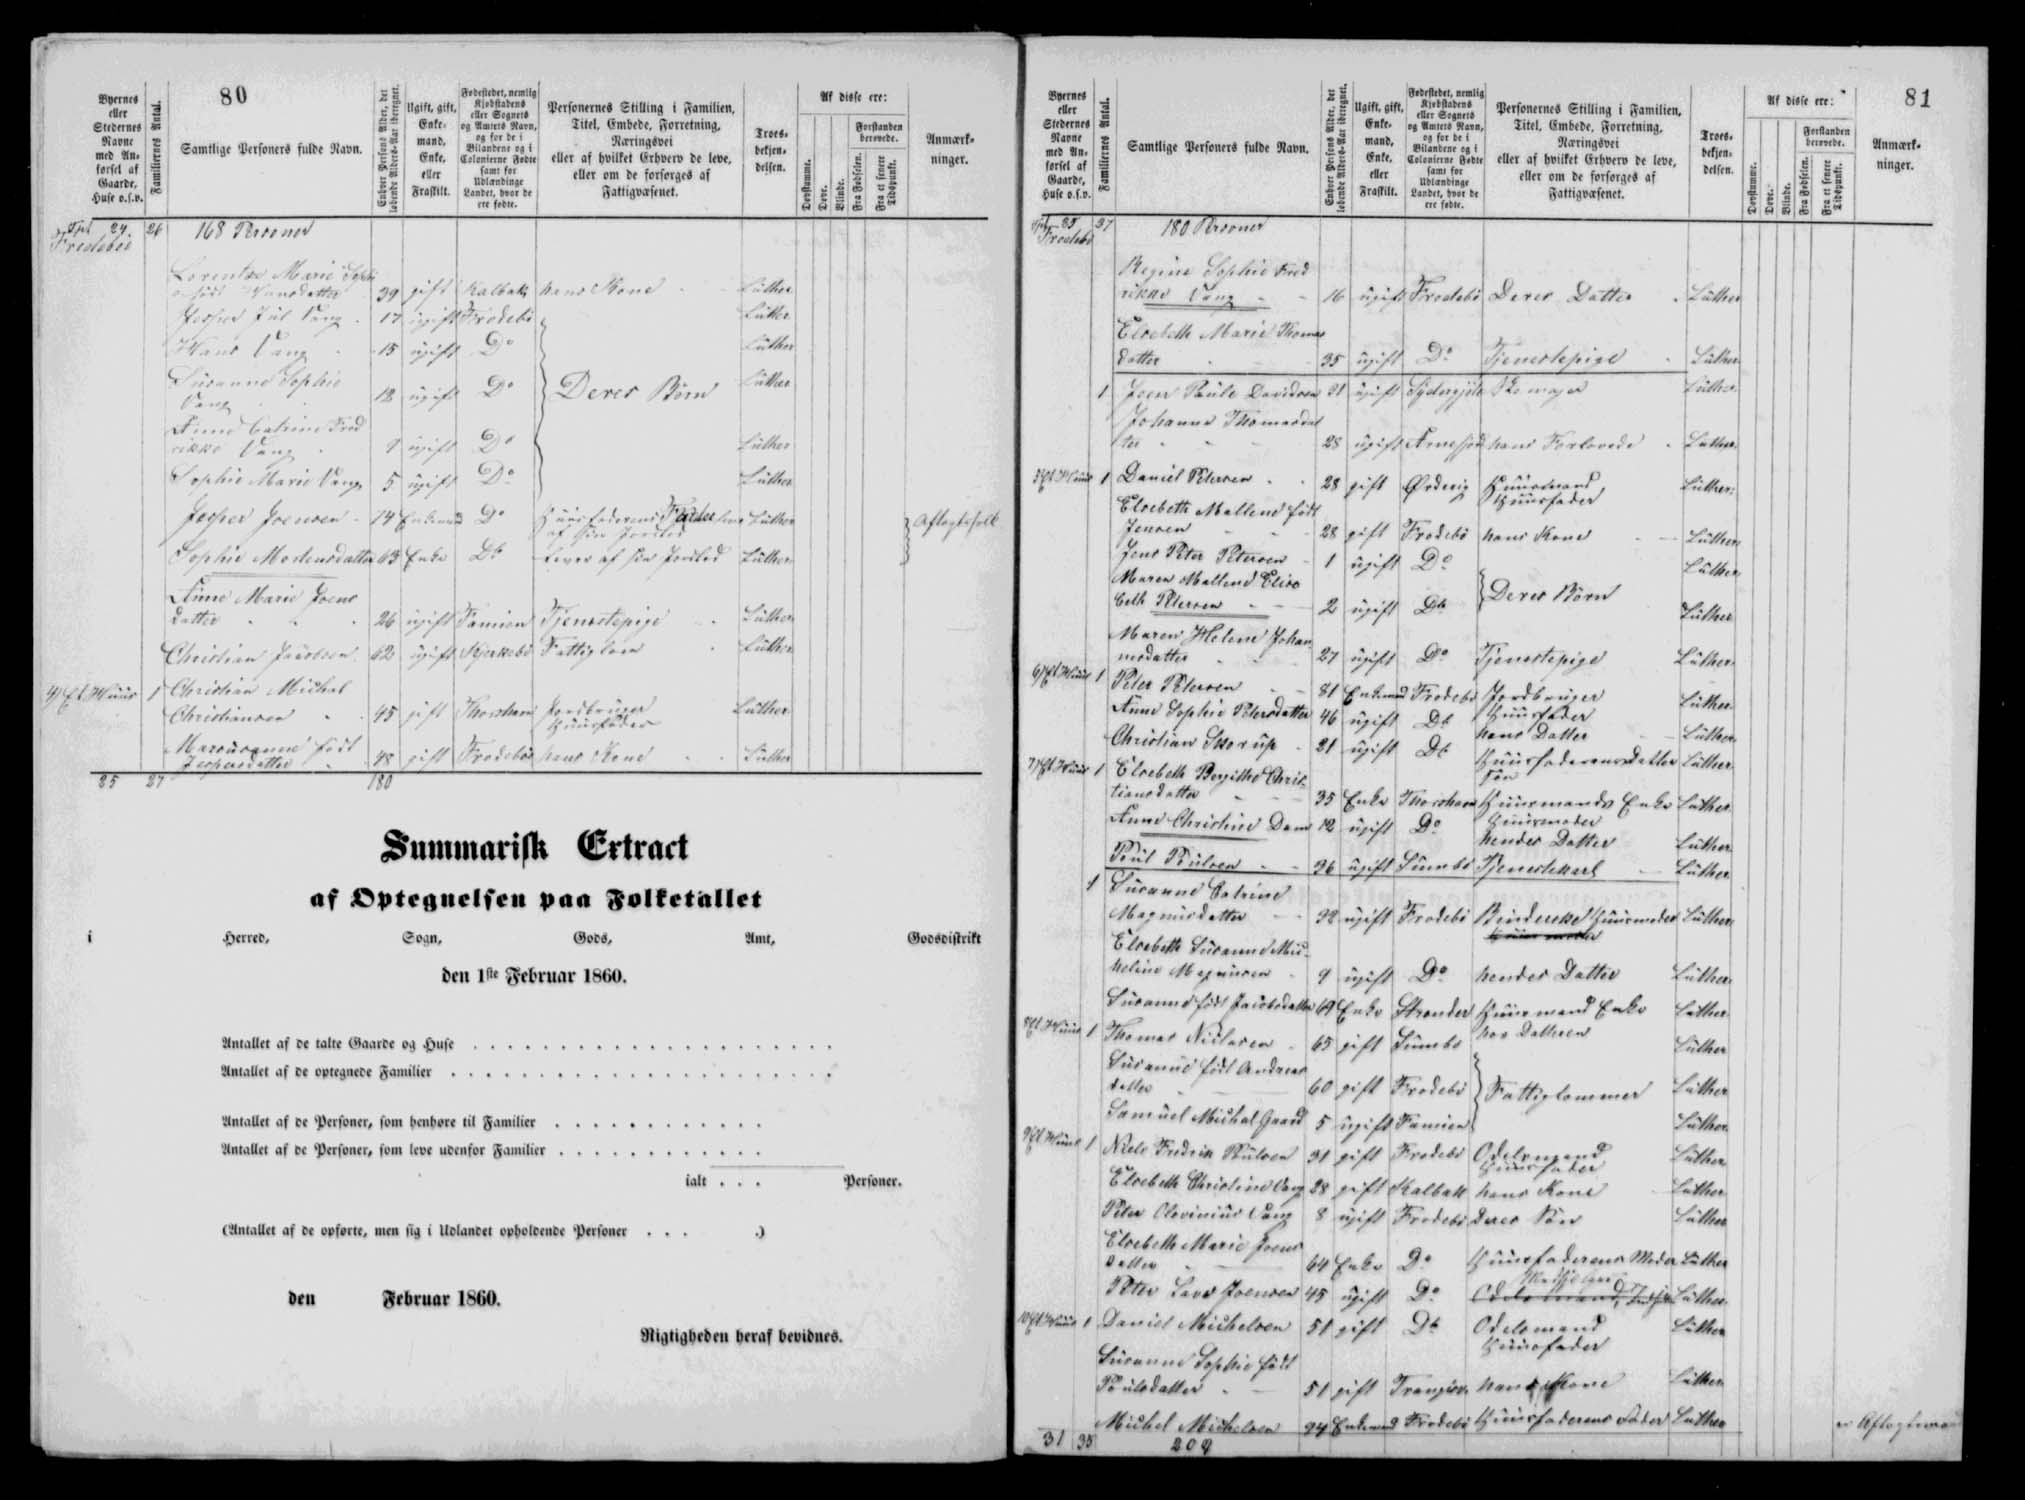 80
Byernes eller Stedernes Navne med Anførsel af Gaarde, Huse o.s.v.
Familiernes Antal.
Samtlige Personers fulde Navn.
Enhver Persons Alder, det løbende Alders-Aar iberegnet.
Ugift, gift, Enkemand, Enke, eller Fraskilt.
Fødestedet, nemlig Kjøbstadens eller Sognets og Amtets Navn, og for de i Bilandene og i Colonierne Fødte samt for Udlændinge Landet, hvor de ere fødte.
Personernes Stilling i Familien, Titel, Embede, Forretning, Næringsvei eller af hvilket Erhverv de leve, eller om de forsørges af Fattigvæsenet.
Troesbekjendelsen.
Af disse ere:
Døvstumme.
Døve.
Blinde.
Forstanden berøvede.
Fra Fødselen.
Fra et senere Tidspunkt.
Anmærkninger.
24 26 168 Personer
Frodebø
Marie Sophie
født Hansdatter 39 gift Kalbak hans Kone Luther
Jesper Jul Vang 17 ugift Frodebø Luther
Hans Vang 15 ugift Do Luther
Susanne Sophie
Vang 12 ugift Do Deres Børn Luther
Anne Catrine Fred
rikke Vang 9 ugift Do Luther
Sophie Marie Vang 5 ugift Do Luther
Jesper Joensen 74 Enkemand Do Huusfaderens Fader Luther Aftægtsfolk
af sin Jordlod
Sophie Mortensdatter 63 Enke Do lever af sin Jordlod Luther
Anne Marie Joens
datter 26 ugift Famien Tjenestepige Luther
Christian Jacobsen 62 ugift Fattiglem Luther
4) Et Huus 1 Christian Michal
Christiansen 45 gift Thorshavn Jordbruger Luther
Huusfader
født
Jespersdatter 48 gift Frodebø hans Kone Luther
25 27 180
Summarisk Extract
af Optegnelsen paa Folketallet
i Herred, Sogn, Gods, Amt, Godsdistrikt
den 1ste Februar 1860.
Antallet af de talte Gaarde og Huse . . . . . . . . . . . . . . . . . . . . . .
Antallet af de optegnede Familier . . . . . . . . . . . . . . . . . . . . . . .
Antallet af de Personer, som henhøre til Familier . . . . . . . . . . . .
Antallet af de Personer, som leve udenfor Familier . . . . . . . . . . . .
ialt . . . Personer.
(Antallet af de opførte, men sig i Udlandet opholdende Personer . . . .)
den Februar 1860.
Rigtigheden heraf bevidnes.
81
Byernes eller Stedernes Navne med Anførsel af Gaarde, Huse o.s.v.
Familiernes Antal.
Samtlige Personers fulde Navn.
Enhver Persons Alder, det løbende Alders-Aar iberegnet.
Ugift, gift, Enkemand, Enke, eller Fraskilt.
Fødestedet, nemlig Kjøbstadens eller Sognets og Amtets Navn, og for de i Bilandene og i Colonierne Fødte samt for Udlændinge Landet, hvor de ere fødte.
Personernes Stilling i Familien, Titel, Embede, Forretning, Næringsvei eller af hvilket Erhverv de leve, eller om de forsørges af Fattigvæsenet.
Troesbekjendelsen.
Af disse ere:
Døvstumme.
Døve.
Blinde.
Forstanden berøvede.
Fra Fødselen.
Fra et senere Tidspunkt.
Anmærkninger.
180 Personer
Frodebø
Regine Sophie Fred
rikke Vang 16 ugift Frodebø Deres Datter Luther
Elsebeth Marie Thomas
datter 35 ugift Do Tjenestepige Luther
1 Joen Paule Davidsen 31 ugift Skomager Luther
Johanne Thomasdat
ter 28 ugift hans Forlovede Luther
5) Et Huus 1 Daniel Petersen 28 gift Ørdevig Huusmand Luther
Huusfader
Elsebeth Mallene født
Jensen 28 gift Frodebø hans Kone Luther
Jens Peter Petersen 1 ugift Do Luther
Maren Mallene Elise
beth Petersen 2 ugift Do Deres Børn Luther
Maren Helene Johan
nesdatter 27 ugift Do Tjenestepige Luther
6) Et Huus 1 Peter Petersen 81 Enkemand Frodebø Jordbruger Luther
Huusfader
Anne Sophie Petersdatter 46 ugift Do hans Datter Luther
Christian Skorup 21 ugift Do Huusfaderens Datter Luther
Søn
7) Et Huus 1 Elsebeth Bergithe Chris
tiansdatter 35 Enke Thorshavn Huusmands Enke Luther
Huusmoder
Anne Christine Dam 12 ugift Do hendes Datter Luther
Poul Poulsen 36 ugift Sumbø Tjenestekarl Luther
1 Susanne Catrine
Magnusdatter 32 ugift Frodebø Huusmoder Luther
Elsebeth Susanne Mic
heline Magnusen 9 ugift Do hendes Datter Luther
Susanne født Jacobsdatter 69 Enke Strender Huusmand Enke Luther
hos Datteren
8) Et Huus 1 Thomas Niclasen 65 gift Sumbø Luther
Susanne født Andreas
datter 60 gift Frodebø Fattiglemmer Luther
Samuel Michal Gaard 5 ugift Famien Luther
9) Et Huus 1 Niels Fredrik Poulsen 31 gift Frodebø Odelsmand Luther
Huusfader
Elsebeth Christine Vang 28 gift Kalbak hans Kone Luther
Peter Olevinius Vang 8 ugift Frodebø Deres Søn Luther
Elsebeth Marie Joens
datter 64 Enke Do Huusfaderens Moder Luther
Peter Joensen 45 ugift Do Odelsmand, Luther
10) Et Huus 1 Daniel Michelsen 51 gift Do Odelsmand Luther
Huusfader
Susanne Sophie født
Poulsdatter 51 gift hans Kone Luther
Michel Michelsen 94 Enkemand Frodebø Huusfaderens Fader Luther
31 35 202